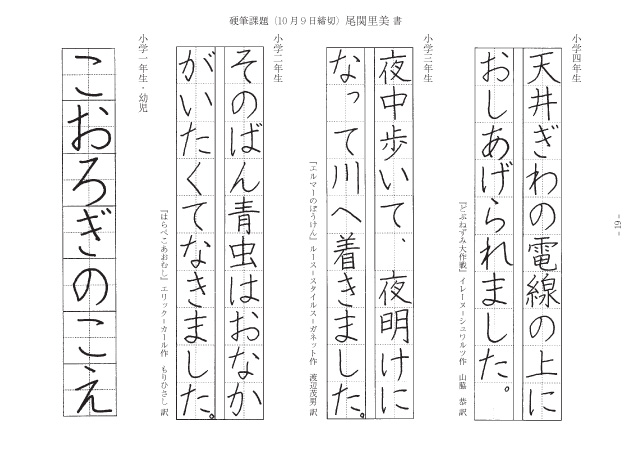 硬筆課題（10月9日締切）尾関里美 書
小学四年生
天井ぎわの電線の上に
おしあげられました。
『どぶねずみ大作戦』イレーヌ＝シュワルツ作　山脇　恭 訳
小学三年生
夜中歩いて、夜明けに
なって川へ着きました。
『エルマーのぼうけん』ルース＝スタイルス＝ガネット作　渡辺茂男 訳
小学二年生
そのばん青虫はおなか
がいたくてなきました。
『はらぺこあおむし』エリック＝カール作　もりひさし 訳
小学一年生・幼児
こおろぎのこえ
- 61 -